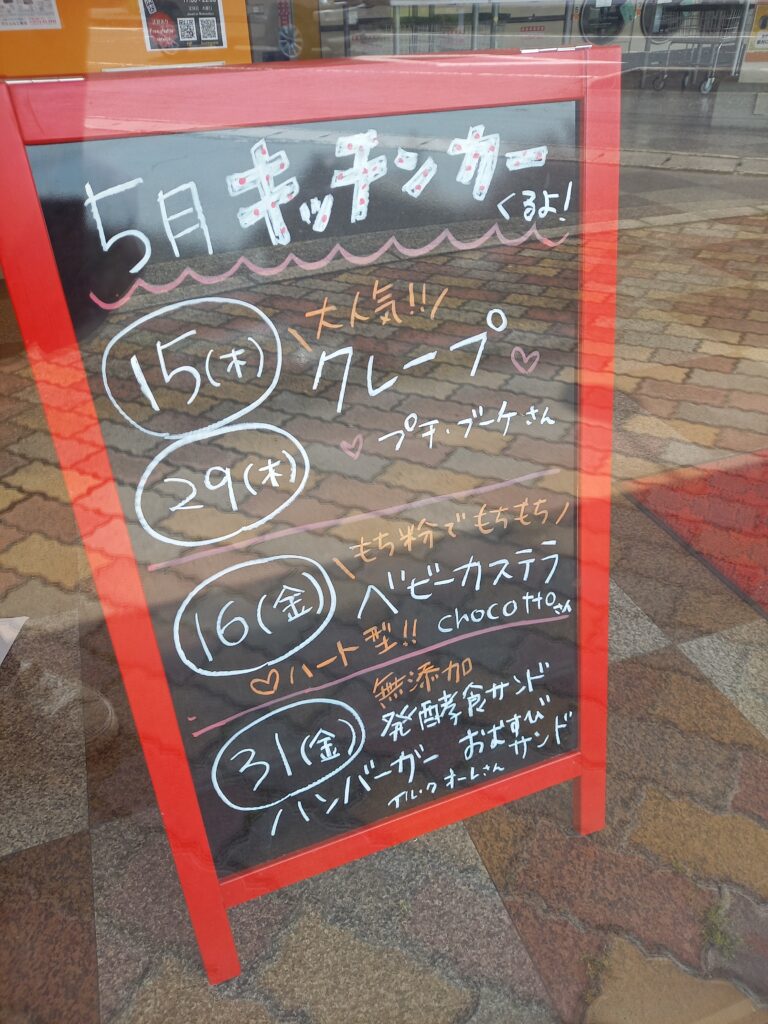 5月 キッチンカー
くるよ!
15(木)
\大人気!!/
クレープ♡
29(木)
♡ プチ・ブーケさん
\もち粉でもちもち/
16(金)
ベビーカステラ
chocottoさん
♡ハート型!!
無添加
31(金)
発酵食サンド
ハンバーガー おむすびサンド